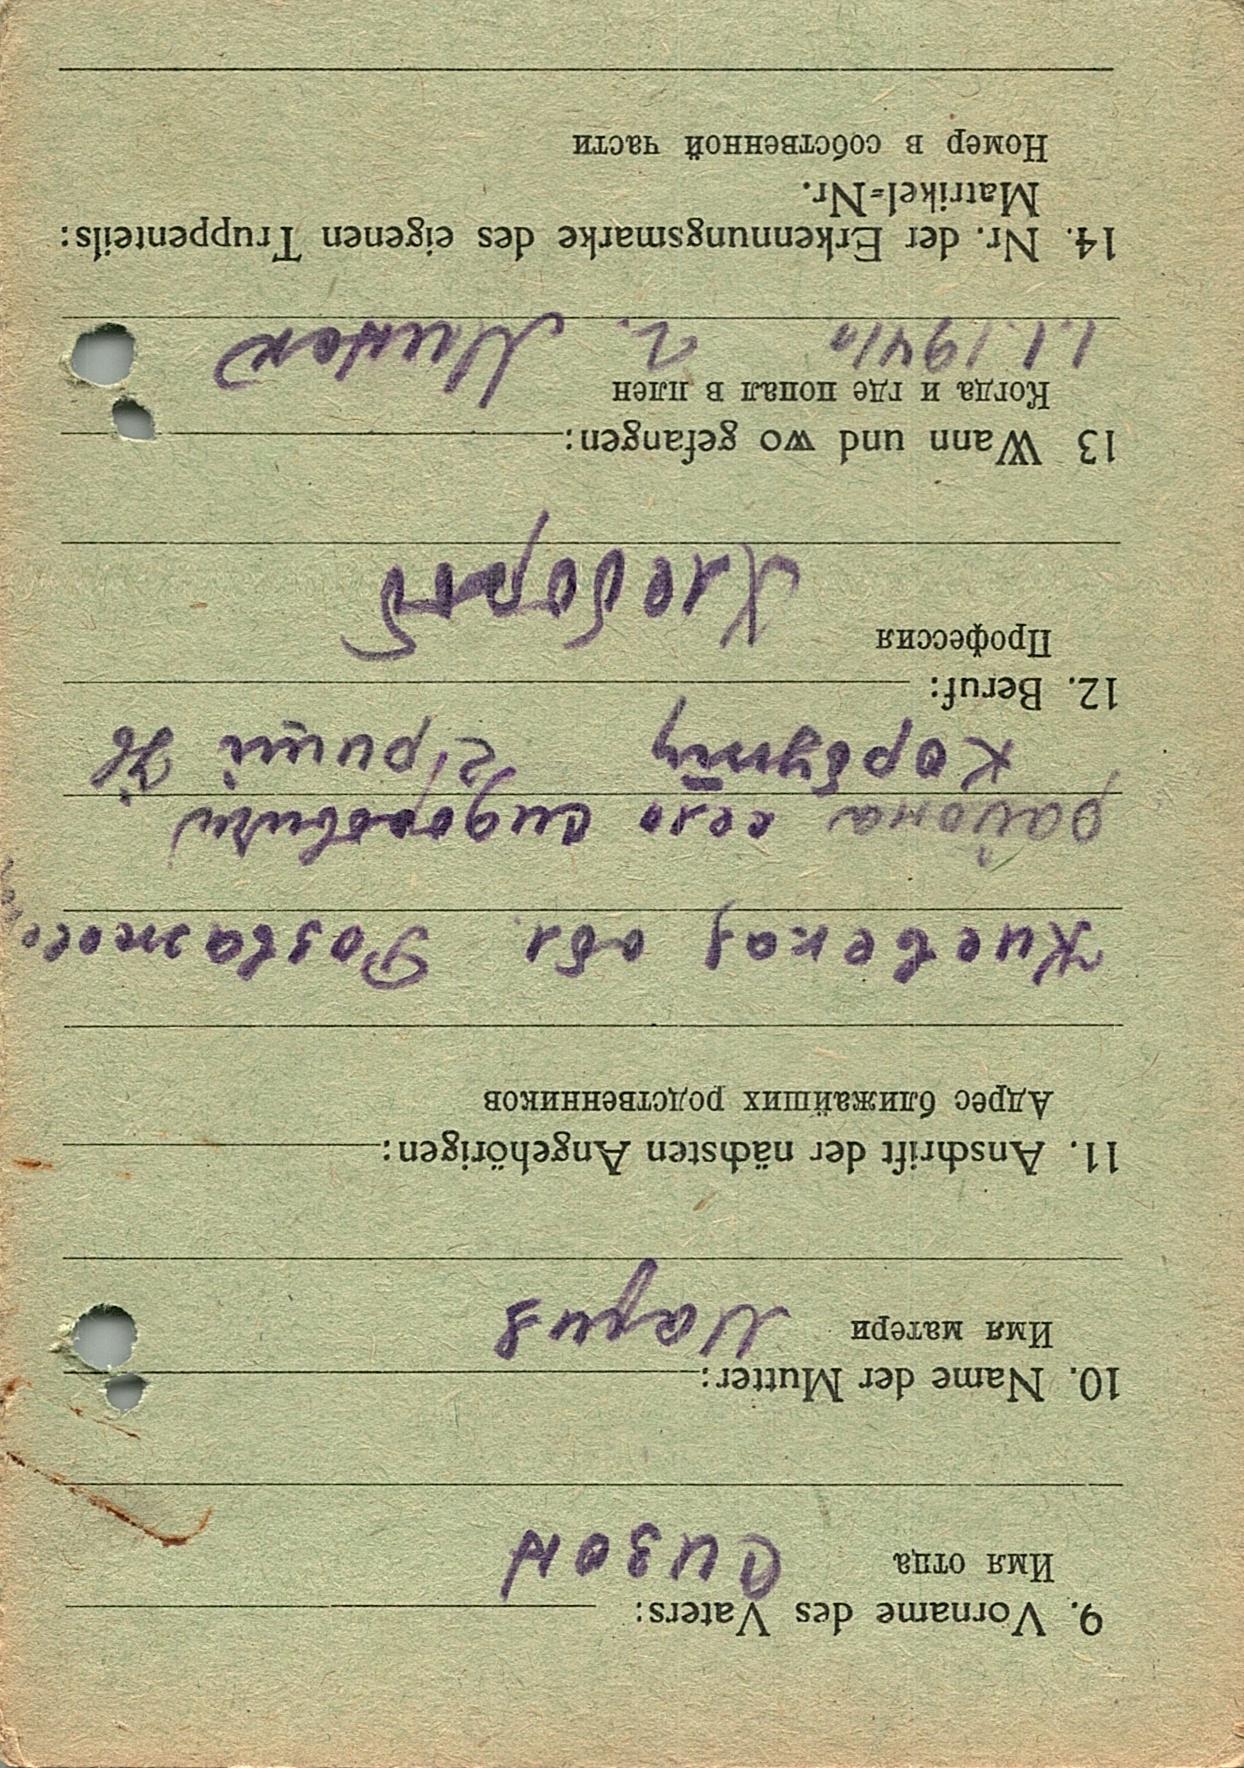 9. Vorname des Vaters:
Имя отца Сизон
10. Name der Mutter:
Имя матери Мария
11. Anschrift der nächsten Angehörigen:
Адрес ближайших родственников
Киевская обл. Розважев
района село сидоровичи
Корбут
12. Beruf:
Профессия Хлебороб
13 Wann und wo gefangen:
Когда и где попал в плен
1.1.1941 г. Минск
14. Nr. der Erkennungsmarke des eigenen Truppenteils:
Matrikel=Nr.
Номер в собственной части